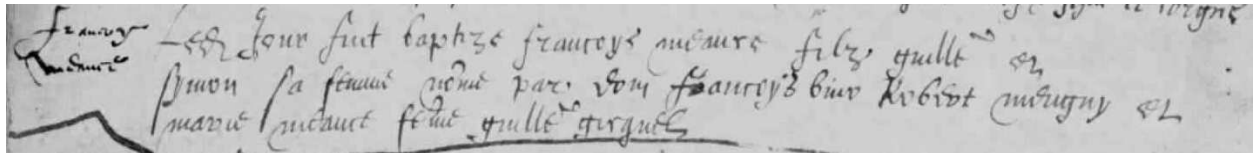 francoys
meance
Led Jour fut baptize francoys meance filz guille et
symon sa femme nome par dom francoys bino Robert meugny et
marie meance feme guille